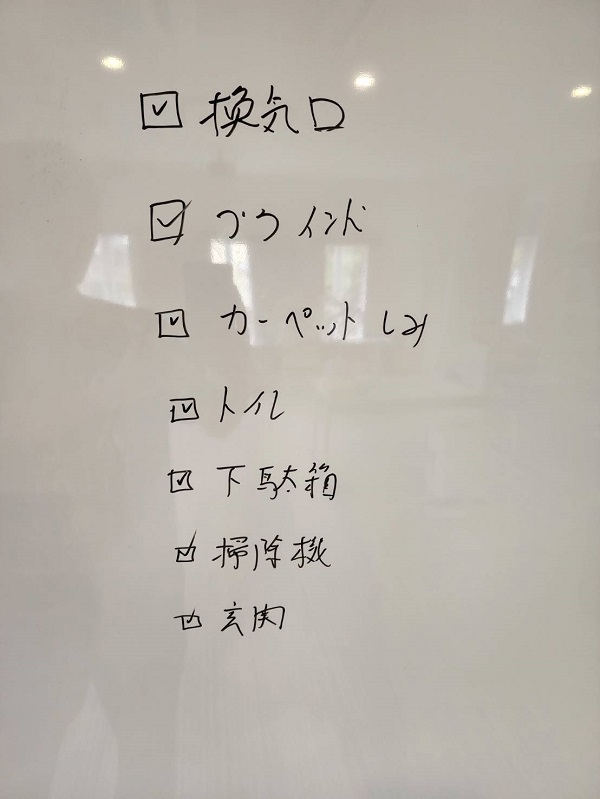 ☑ 換気口
☑ ブラインド
☑ カーペットしみ
☑ トイレ
☑ 下駄箱
☑ 掃除機
☑ 玄関